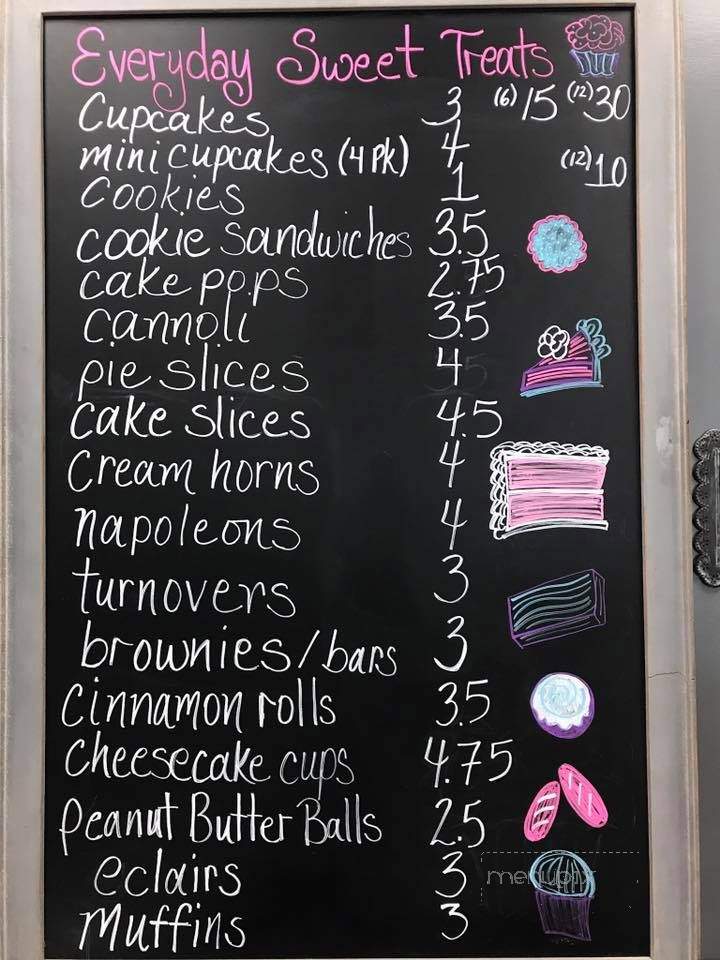 Everyday Sweet Treats
Cupcakes 3 (6) 15 (12) 30
mini cupcakes (4 Pk) 4
Cookies 1 (12) 10
cookie sandwiches 3.5
cake pops 2.75
cannoli 3.5
pie slices 4
cake slices 4.5
Cream horns 4
napoleons 4
turnovers 3
brownies/bars 3
Cinnamon rolls 3.5
Cheesecake cups 4.75
Peanut Butter Balls 2.5
eclairs 3
menupix
Muffins 3